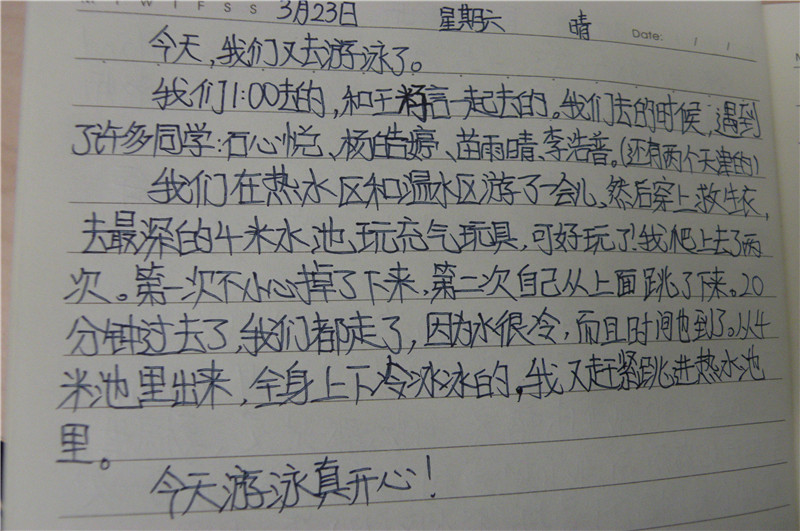 M T W T F S S 3月23日 星期六 晴 Date: / /
今天,我们又去游泳了。
我们1:00去的,和王籽言一起去的。我们去的时候,遇到
了许多同学:石心悦、杨皓婷、苗雨晴、李浩普。(还有两个天津的)
我们在热水区和温水区游了一会儿。然后穿上救生衣,
去最深的4米水池、玩充气玩具,可好玩了!我爬上去了两
次。第一次不小心掉了下来,第二次自己从上面跳了下来。20
分钟过去了,我们都走了,因为水很冷,而且时间也到了。从4
米池里出来,全身上下冷冰冰的,我又赶紧跳进热水池
里。
今天游泳真开心!